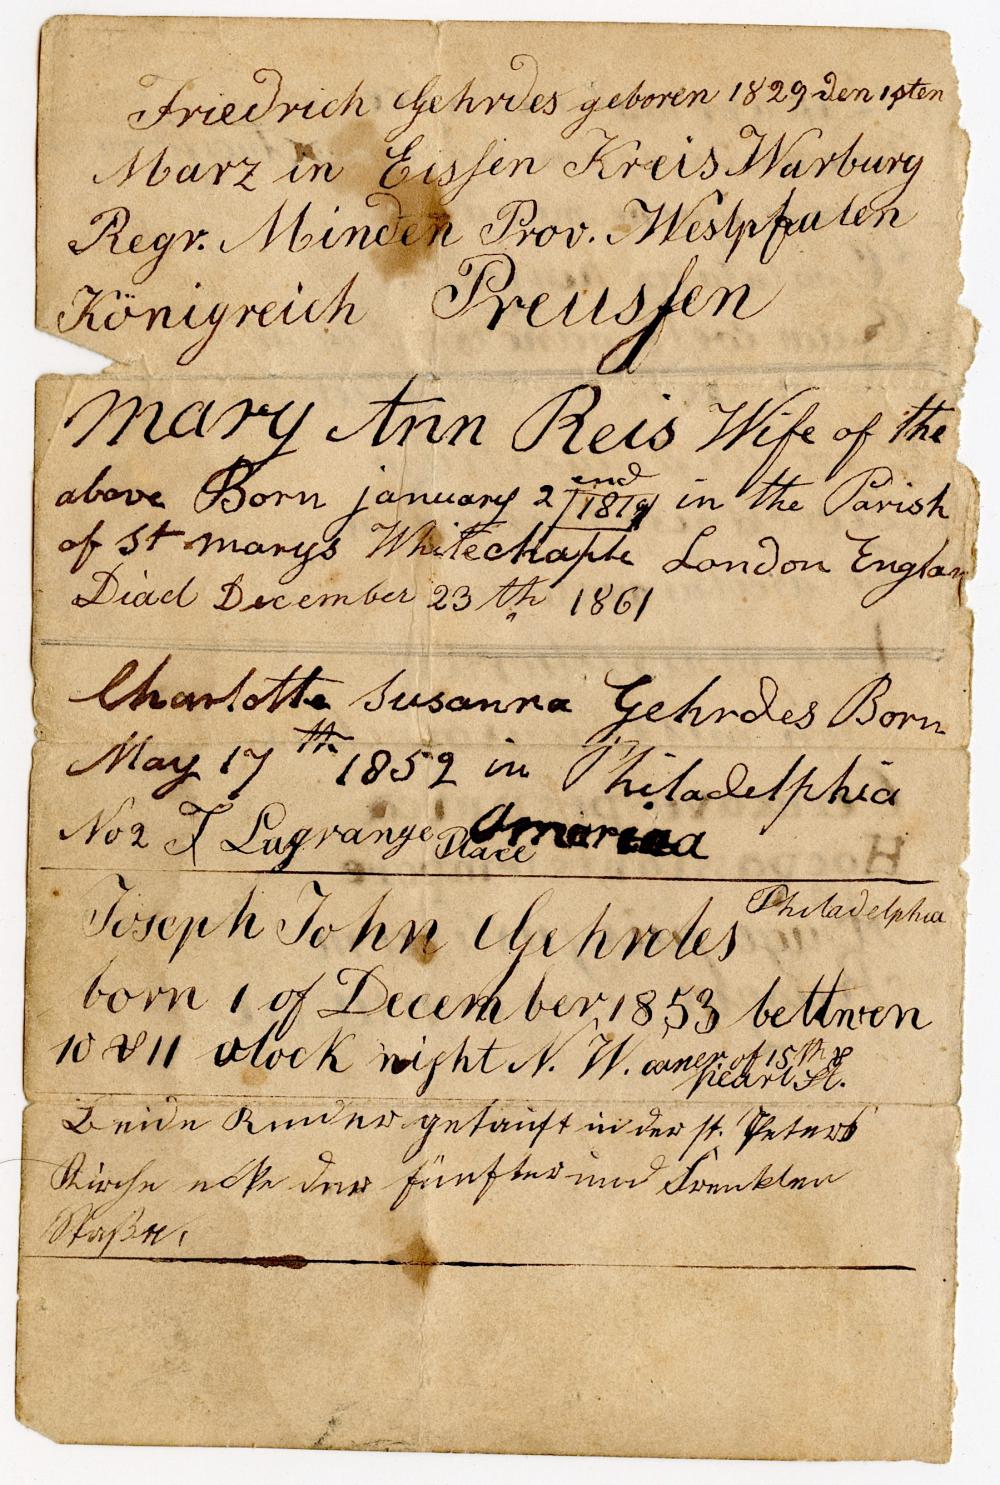 Friedrich Gehrdes geboren 1829 den 1sten
Marz in Eissen Kreis Warburg
Regr. Minden Prov. Westpfalen
Königreich Preussen
Mary Ann Reis Wife of the
above Born january 2end 1819 in the Parish
of St marys Whitechaple London Englan
Diad December 23th 1861
Charlotte Susanna Gehrdes Born
May 17th 1852 in Philadelphia
No 2 Lagrange Place Amarica
Joseph John Gehrdes Philadelphia
born 1 of December 1853 bettwen
10 & 11 oclock night N. W. corner of 15th &
pearl St.
Beide Kinder getauft in der st. Peters
Kirche ecke der fünfter und Frenklen
Staße.